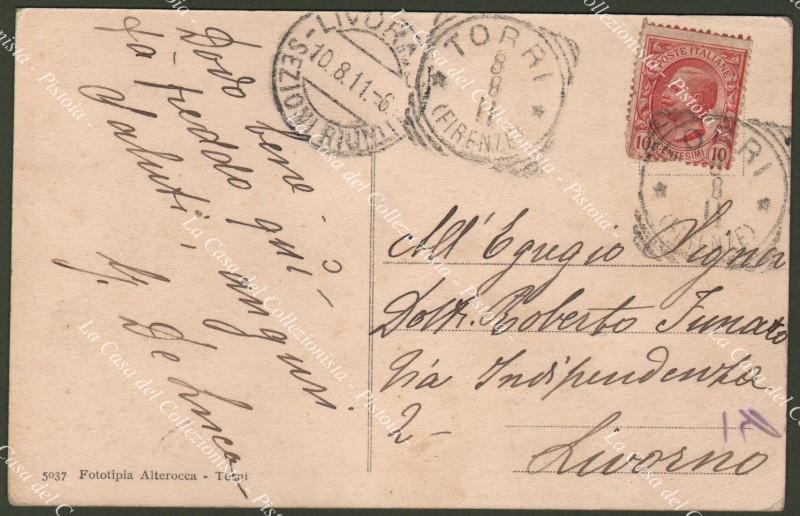 Dodo bene -
fa freddo qui -
Saluti, auguri
G. De Luca -
LIVORNO
10.8.11.-6
SEZIONI RIUNITE
TORRI
8
8
11
(FIRENZE)
POSTE ITALIANE
10 CENTESIMI 10
TORRI
8
8
11
(FIRENZE)
All'Egregio Signor
Dott. Roberto Funaro
Via Indipendenza
2 -
Livorno
5037 Fototipia Alterocca - Terni
La Casa del Collezionista - Pistoia